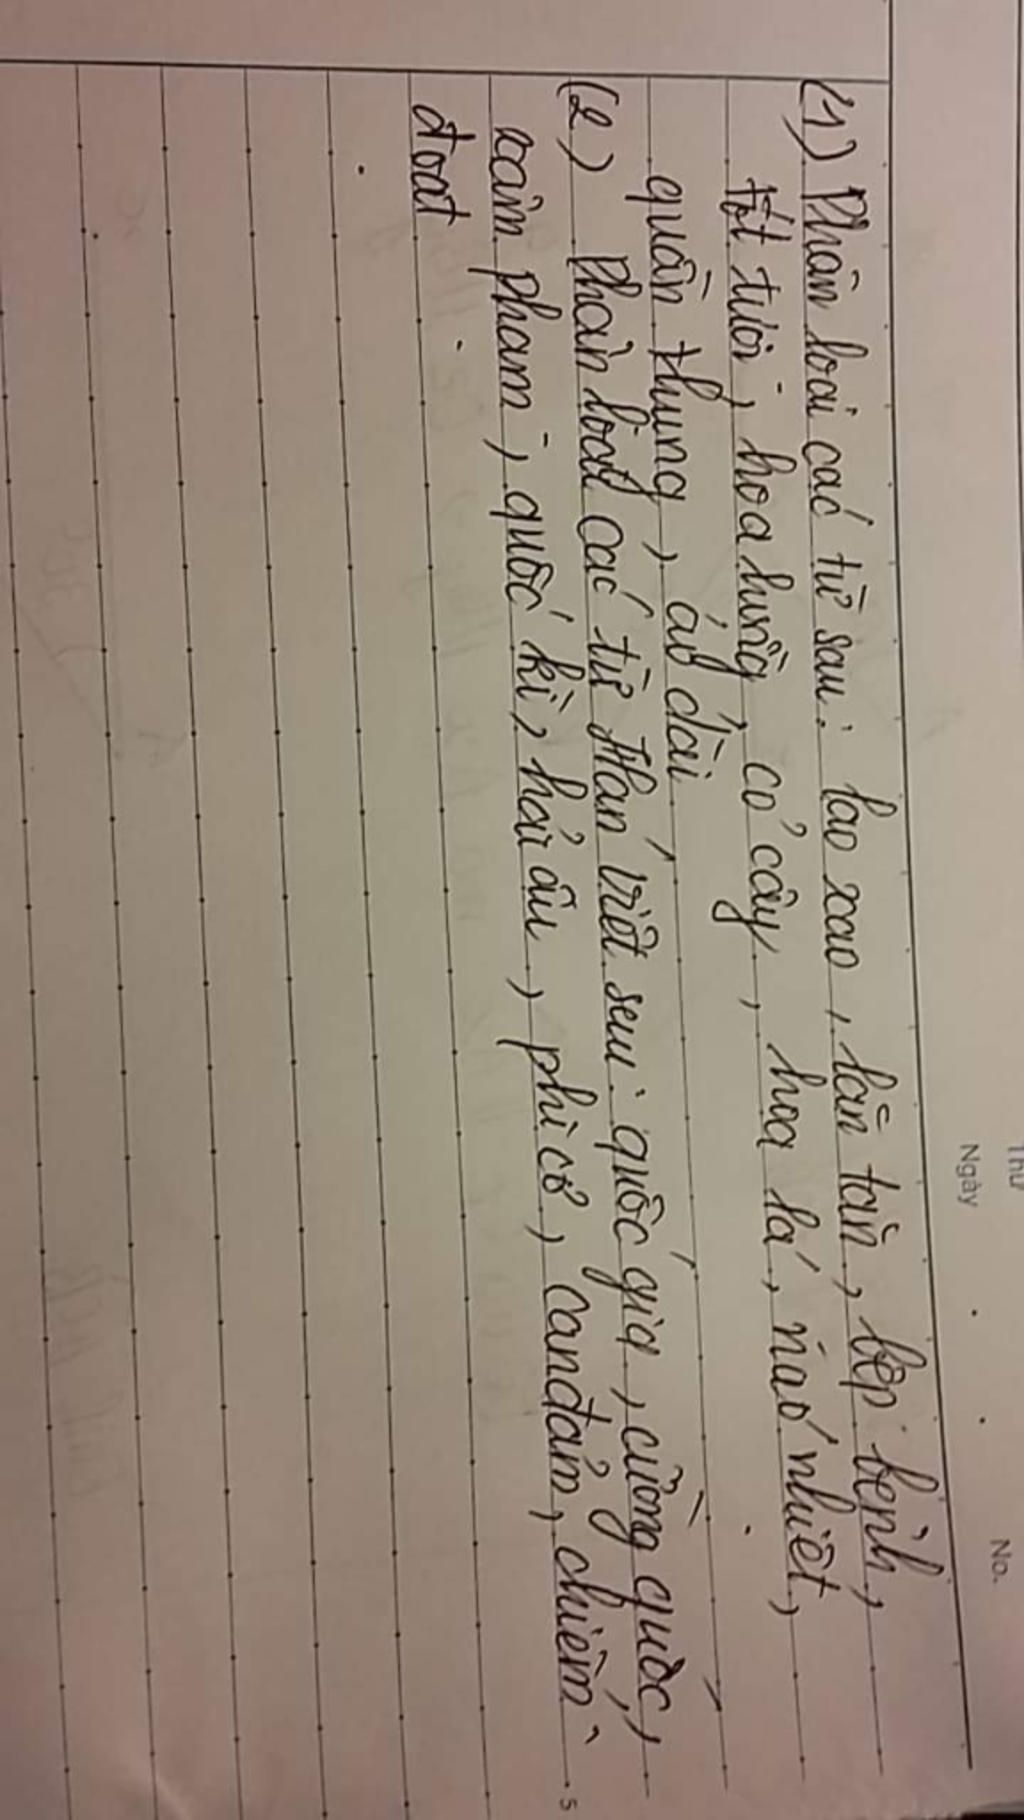 Thứ
Ngày
No.
(1) Phân loại các từ sau: lao xao, lăn tăn, bập bềnh,
tốt tươi, hoa hồng, cỏ cây, hoa lá, náo nhiệt,
quần thụng, áo dài
(2) Phân loại các từ Hán Việt sau: quốc gia, cường quốc,
xâm phạm, quốc kì, hải âu, phi cơ, can đảm, chiếm
đoạt
5